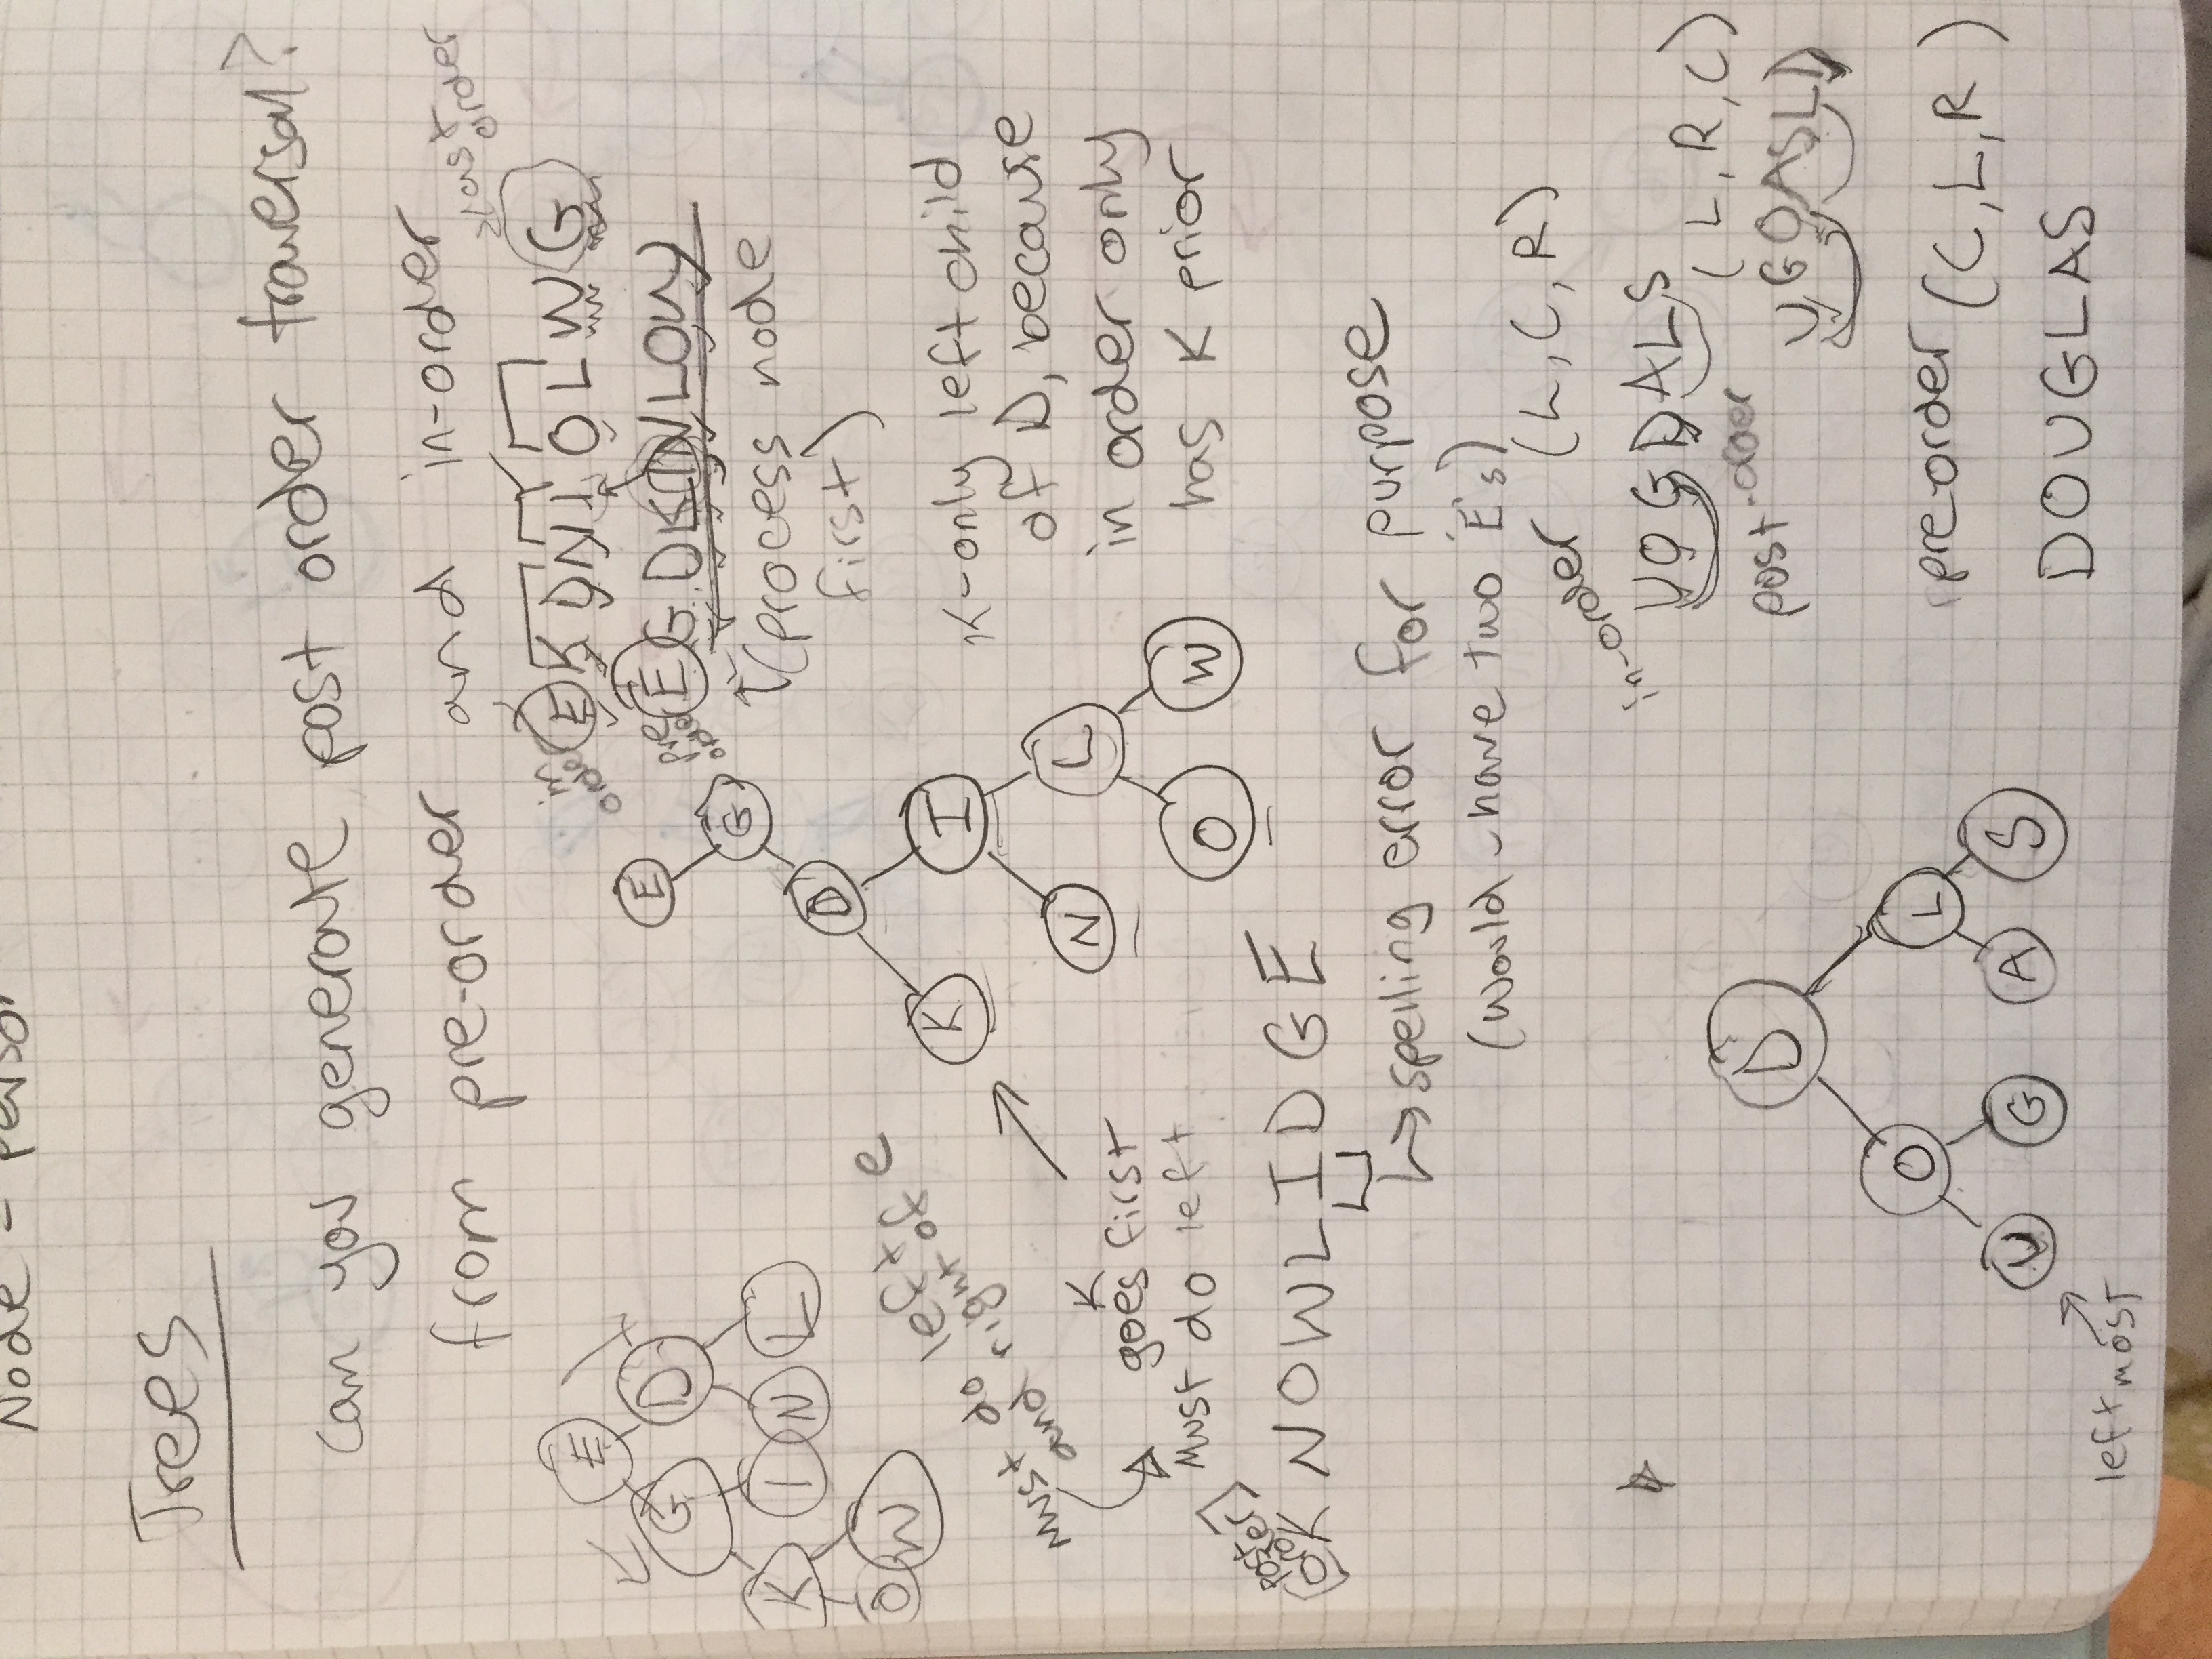 Node - perso
Trees
can you generate post order traversal?
from pre-order and in-order
last
order
in
order
E K D N I O L W G
Pre
order
E G D K I N L O W
(process node
first)
E
G D
K I N L
O W
E
G
D
K I
N L
O W
Must do left
and right of e
K
goes first
Must do left
K-only left child
of D, because
in order only
has K prior
Post
order
K N O W L I D G E
spelling error for purpose
(would have two 'E's)
in-order (L, C, R)
U O G D A L S
post-order (L, R, C)
U G O A S L D
pre-order (C, L, R)
DOUGLAS
D
O L
U G A S
left most